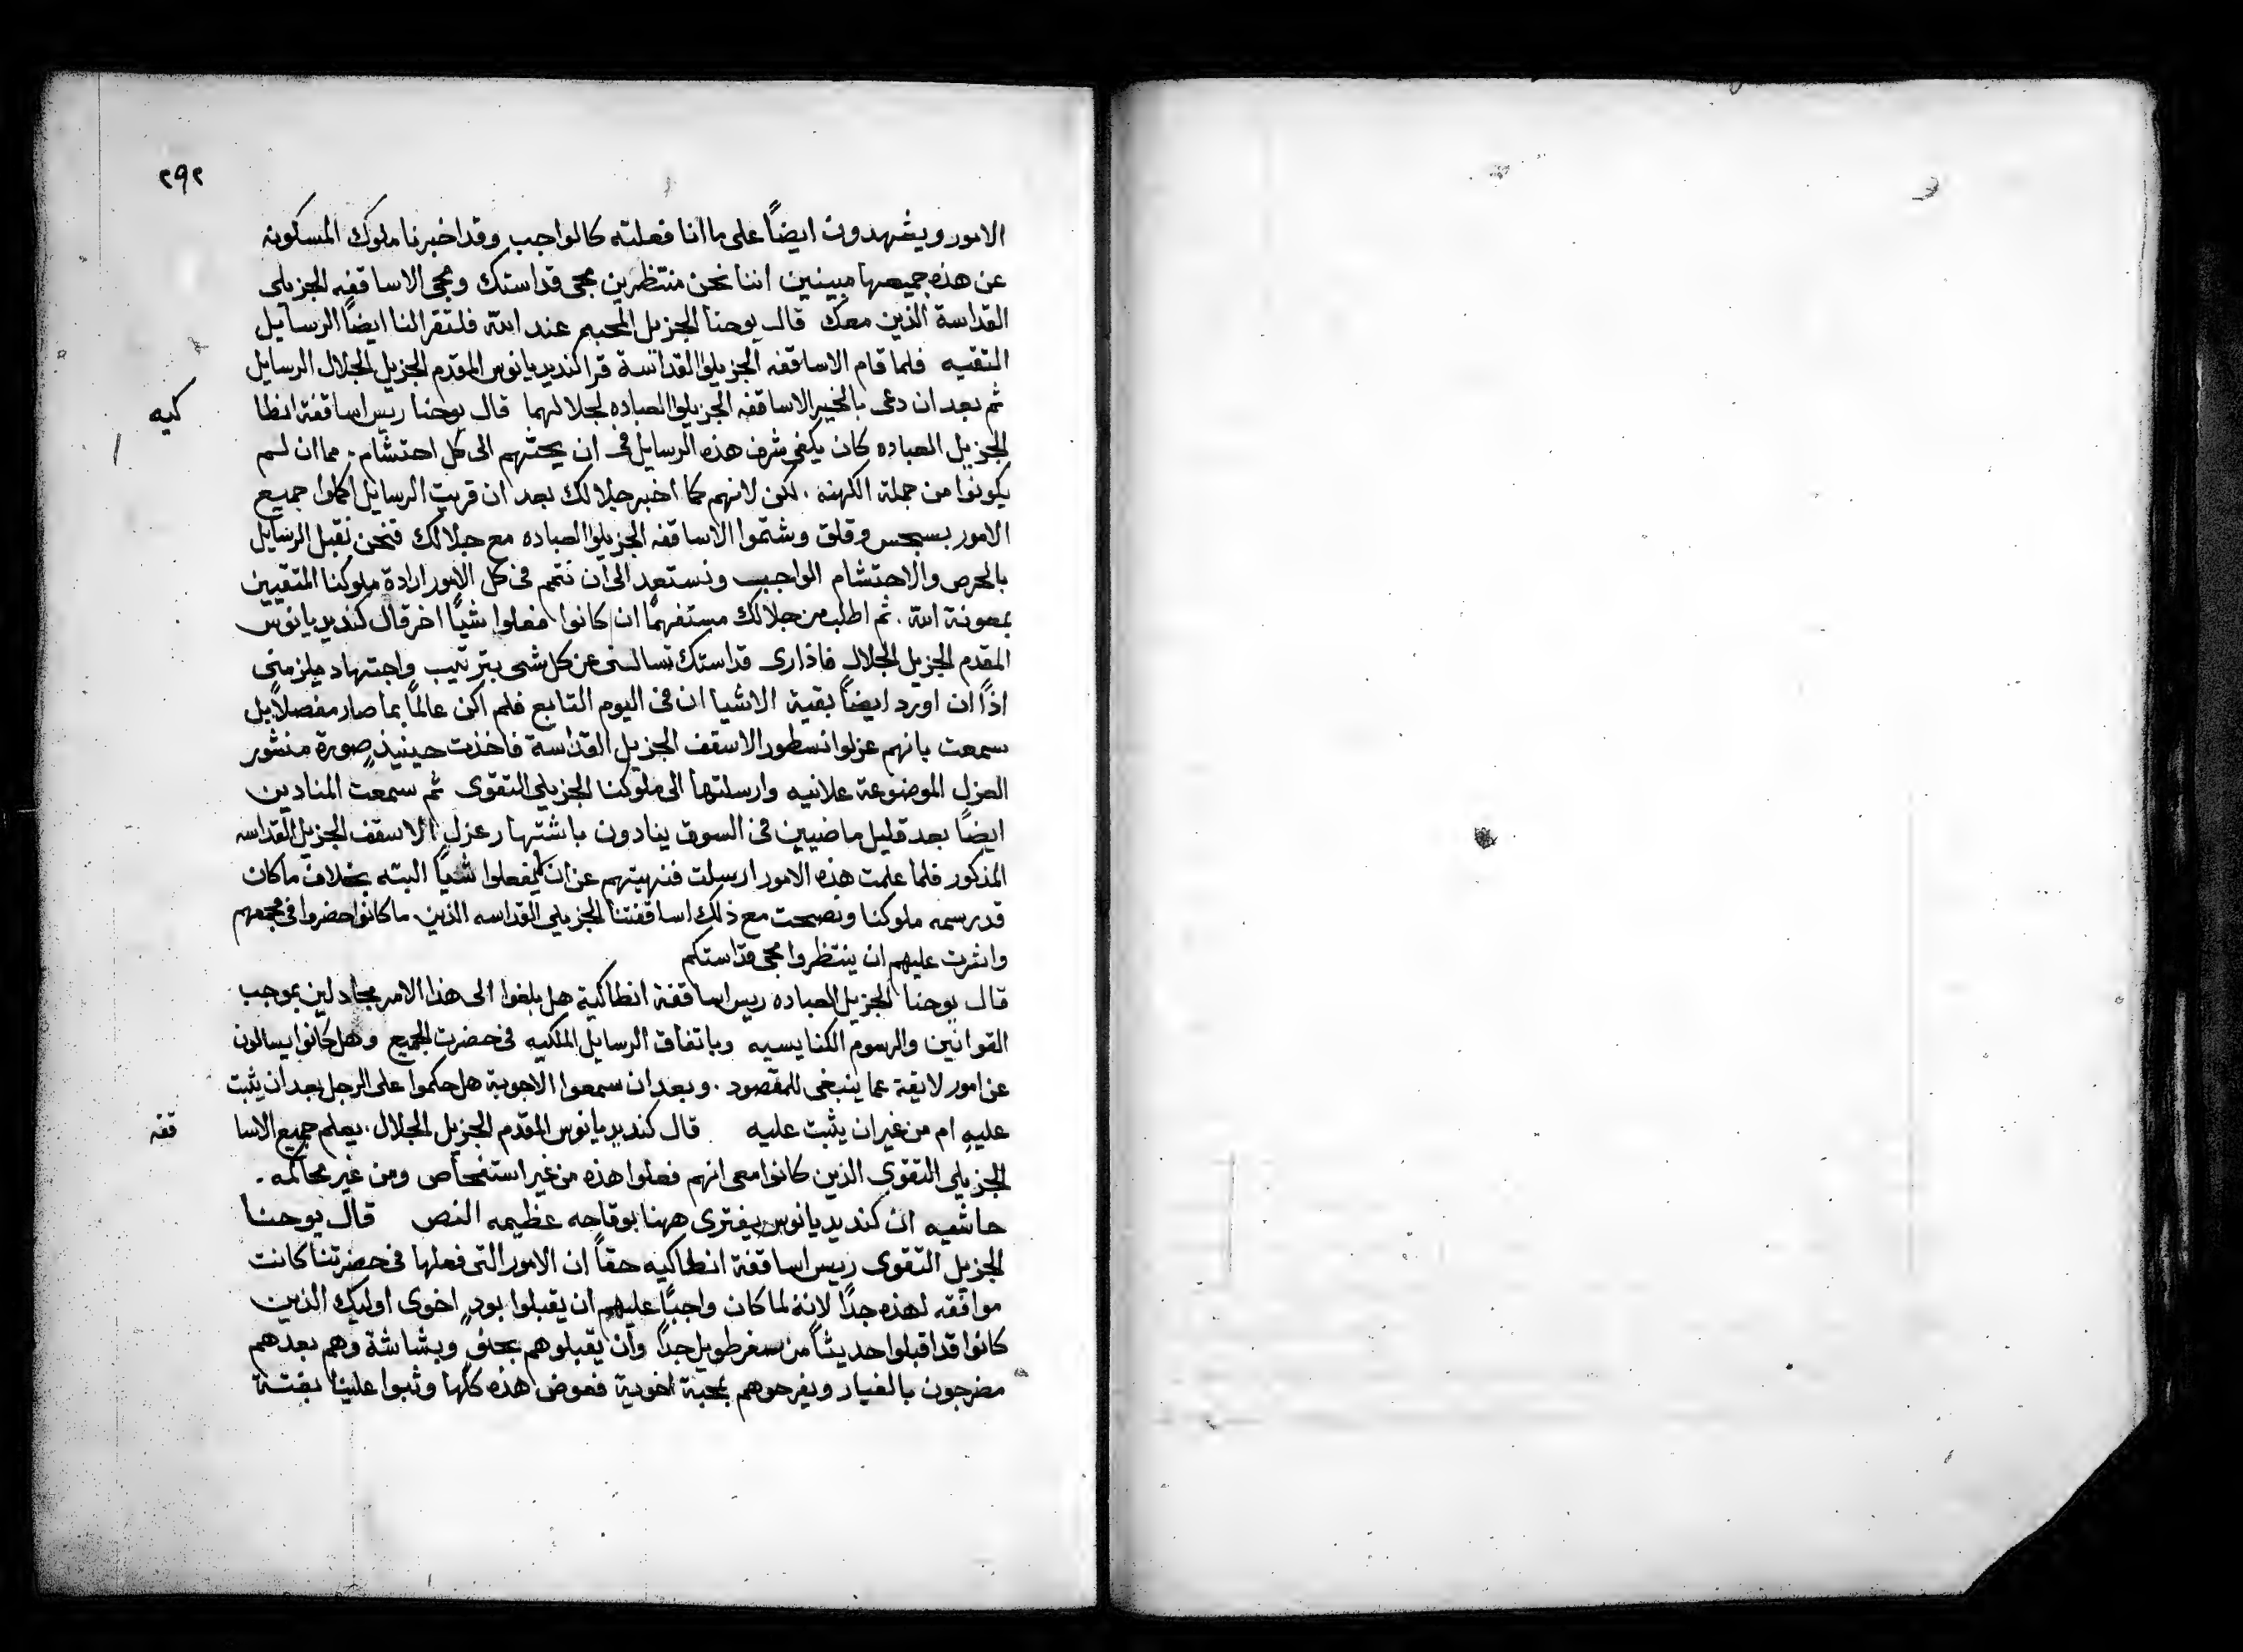 ٢٩٢
الامور ويشهدون ايضاً على ما انا فعلته كالواجب وقد اخبرنا ملوك المسكونه
عن هذه جميعها مبينين اننا نحن منتظرين مجى قداستك ومجى الاساقفه الجزيلى
القداسة الذين معك قال يوحنا الجزيل المحبه عند الله فلتقرا لنا ايضاً الرسايل
التقيه فلما قام الاساقفه الجزيلوا القداسة قرا كنديديانوس المقدم الجزيل الجلال الرسايل
ثم بعد ان دعى بالخير الاساقفه الجزيلوا العباده لجلالهما قال يوحنا ريس اساقفة انطا
كيه
الجزيل العباده كان يكفى شرف هذه الرسايل فى ان يحثهم الى كل احتشام. مما ان لم
يكونوا من جملة الكهنه. لكن لانهم كما اخبر جلالك بعد ان قريت الرسايل اكملوا جميع
الامور بسجس وقلق وشتموا الاساقفه الجزيلوا العباده مع جلالك فنحن نقبل الرسايل
بالحرص والاحتشام الواجب ونستعد الى ان نتمم فى كل الامور ارادة ملوكنا المتقيين
بمعونة الله. ثم اطلب من جلالك مستفهماً ان كانوا فعلوا شياً اخر قال كنديديانوس
المقدم الجزيل الجلال فاذ ارى قداستك تسالنى عن كل شى بترتيب واجتهاد يلزمنى
اذاً ان اورد ايضاً بقية الاشيا ان فى اليوم التابع فلم اكن عالماً بما صار مفصلاً بل
سمعت بانهم عزلوا نسطور الاسقف الجزيل القداسة فاخذت حينيذٍ صورة منشور
العزل الموضوعة علانيه وارسلتها الى ملوكنا الجزيلى التقوى ثم سمعت المنادين
ايضاً بعد قليل ماضيين فى السوق ينادون باشتهار عزل الاسقف الجزيل القداسه
المذكور فلما علمت هذه الامور ارسلت فنهيتهم عن ان لا يفعلوا شياً البته بخلاف ما كان
قد رسمه ملوكنا ونصحت مع ذلك اساقفتنا الجزيلى القداسه الذين ما كانوا حضروا فى مجمعهم
واشرت عليهم ان ينتظروا مجى قداستكم
قال يوحنا الجزيل العباده ريس اساقفة انطاكية هل بلغوا الى هذا الامر مجادلين بموجب
القوانين والرسوم الكنايسيه وباتفاق الرسايل الملكيه فى حضرت الجميع وهل كانوا يسالون
عن امور لايقة عما ينبغى للمقصود. وبعد ان سمعوا الاجوبة هل حكموا على الرجل بعد ان يثبت
عليه ام من غير ان يثبت عليه قال كنديديانوس المقدم الجزيل الجلال. يعلم جميع الاسا
قفه
الجزيلى التقوى الذين كانوا معى انهم فعلوا هذه من غير استفحاص ومن غير محاكمه.
حاشيه ان كنديديانوس يفترى ههنا بوقاحه عظيمه النص قال يوحنا
الجزيل التقوى ريس اساقفة انطاكيه حقاً ان الامور التى فعلها فى حضرتنا كانت
موافقه لهذه جداً لانه لما كان واجباً عليهم ان يقبلوا بودٍ اخوى اوليك الذين
كانوا قد اقبلوا حديثاً من سفر طويل جداً وان يقبلوهم بحنوٍ وبشاشة وهم بعدهم
مضرجون بالغبار ويفرحوهم بمحبة اخوية فعوض هذه كلها وثبوا علينا بغتة